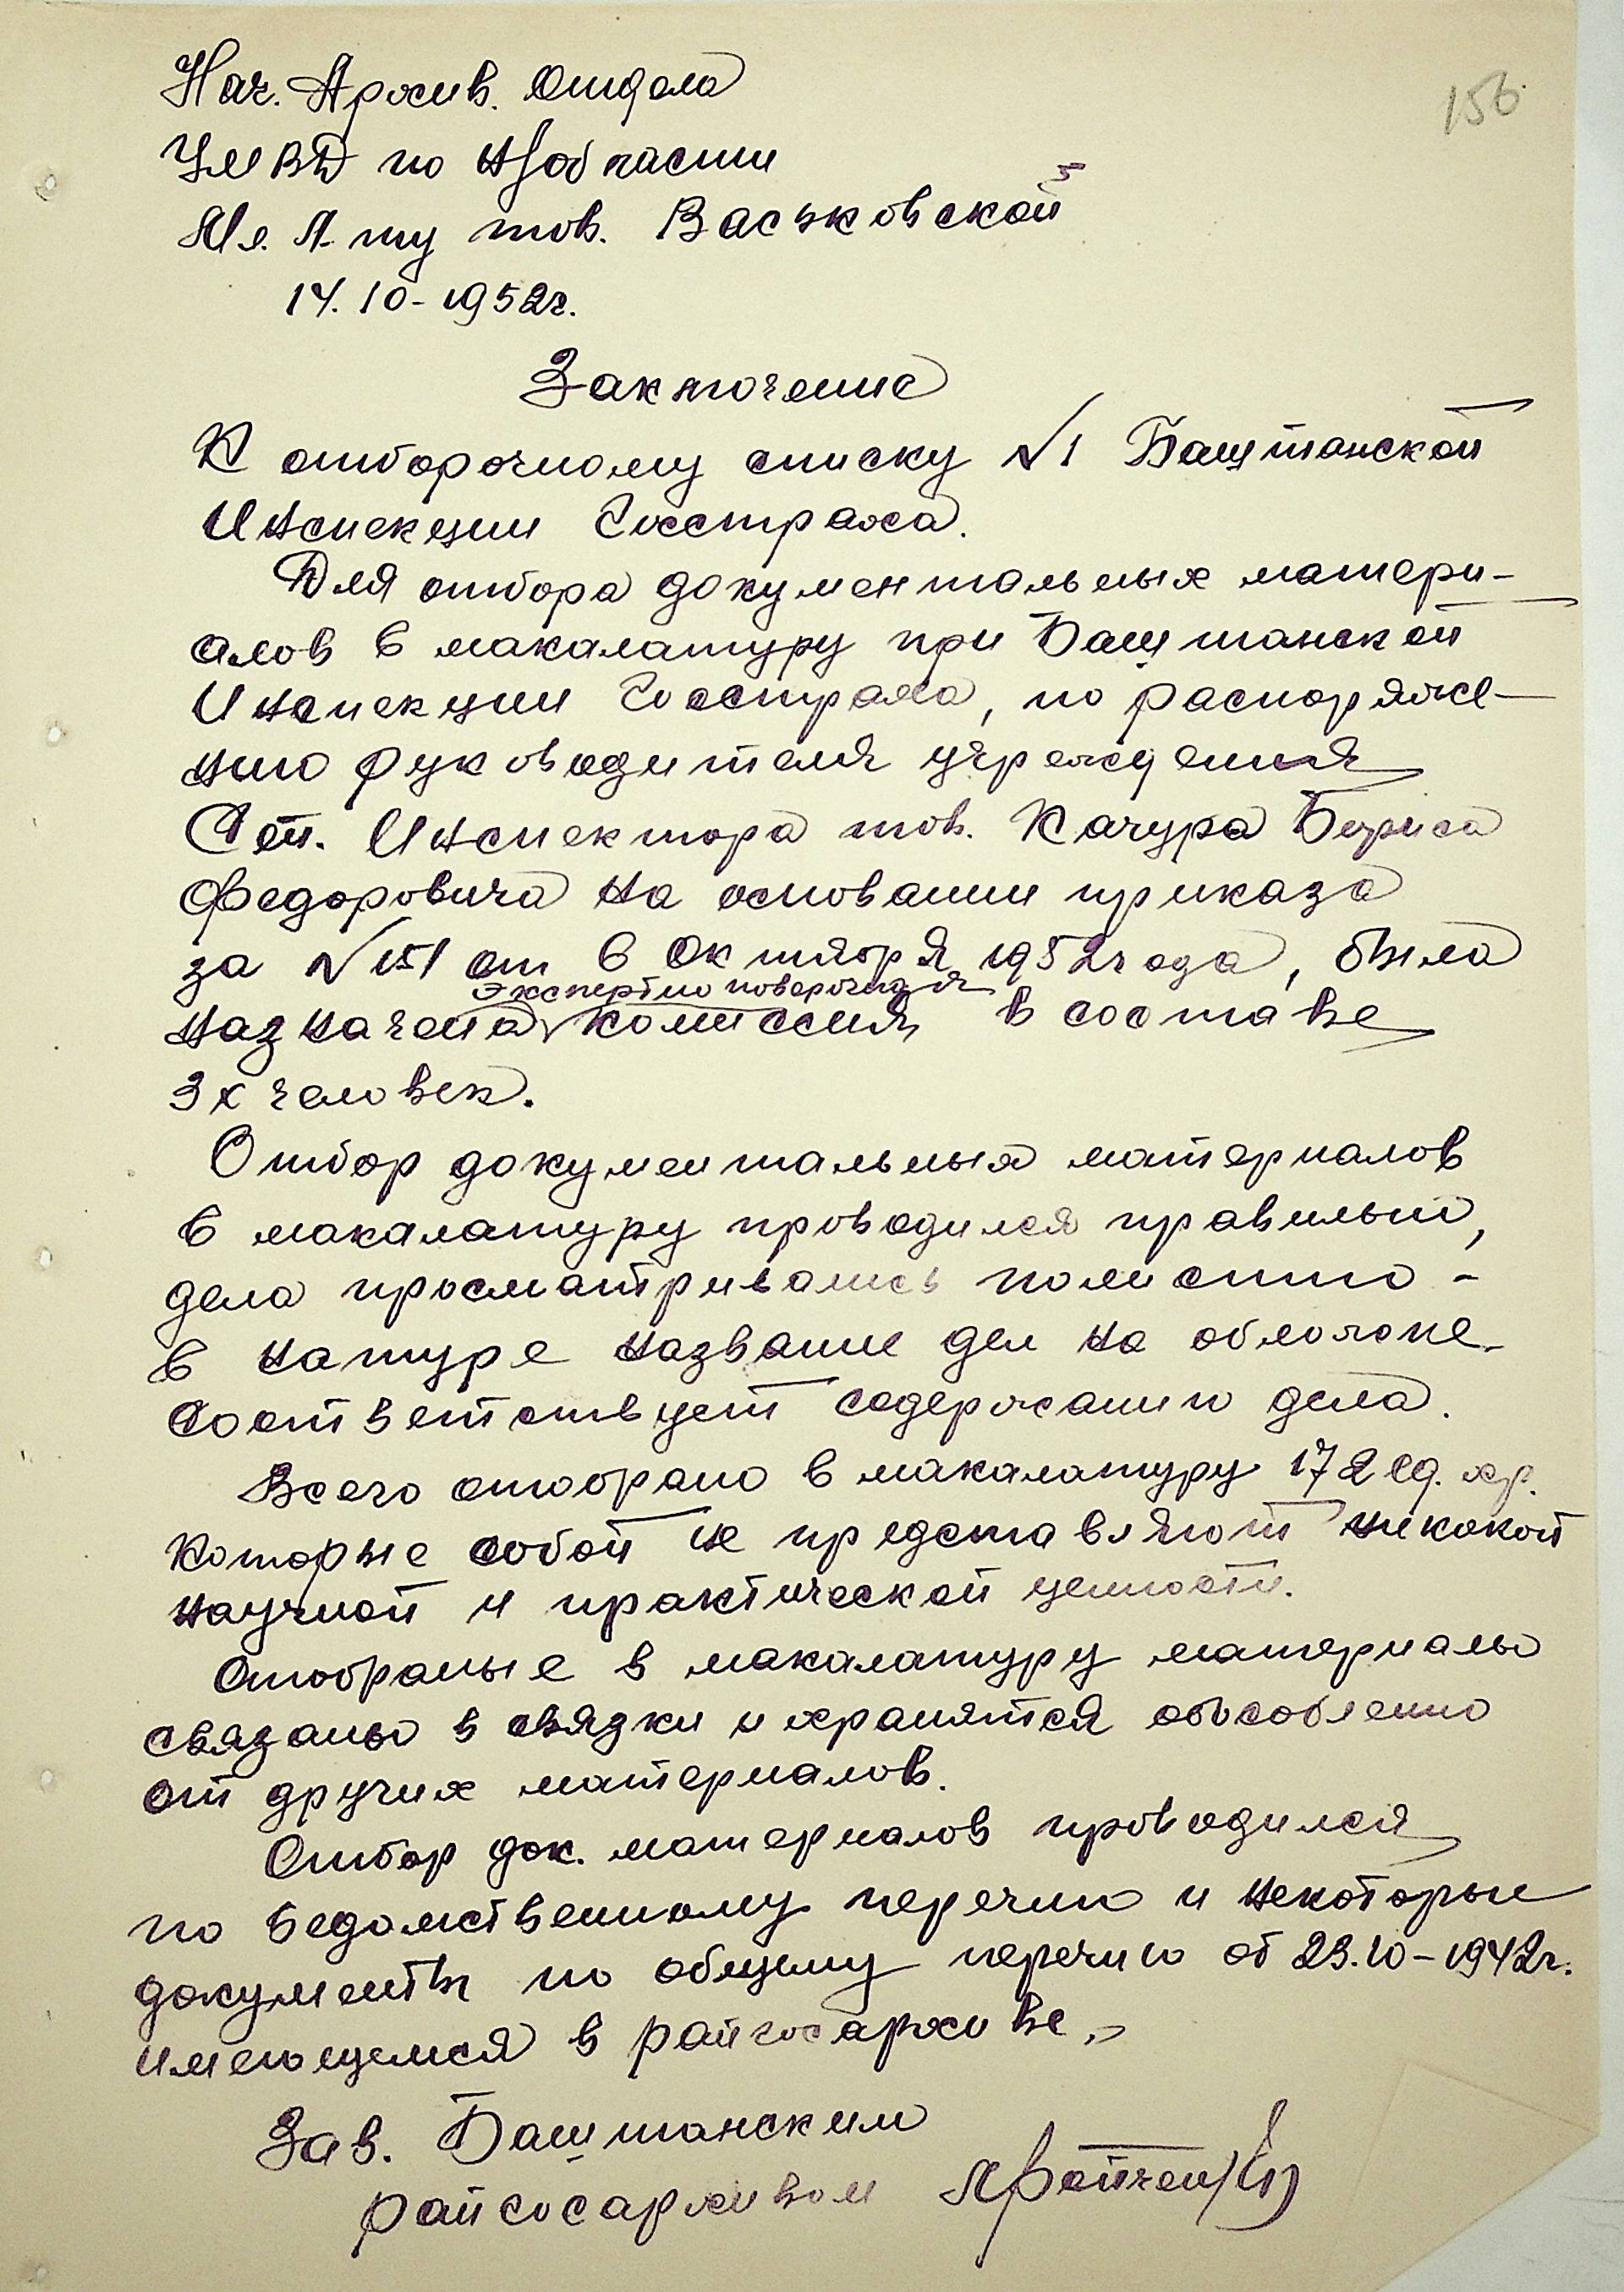 156
Нач. Архив. Отдела
УМВД по Н/области
Мл. Л-ту тов. Васьковской
14.10-1952г.
Заключение
К отборочному списку №1 Баштанской
Инспекции Госстраха.
Для отбора документальных матери-
алов в макалатуру при Баштанской
Инспекции Госстраха, по распоряже-
нию руководителя учреждения
Ст. Инспектора тов. Качура Бориса
Федоровича на основании приказа
за №151 от 6 октября 1952 года, была
экспертно поверочная
назначена комиссия в составе
3х человек.
Отбор документальных материалов
в макалатуру проводился правильно,
дела просматривались полистно -
в натуре название дел на обложке
соответствует содержанию дела.
Всего отобрано в макалатуру 172 ед. хр.
которые собой не представляют никакой
научной и практической ценности.
Отобраные в макалатуру материалы
связаны в связки и хранятся обособленно
от других материалов.
Отбор док. материалов проводился
по ведомственному перечню и некоторые
документы по общему перечню от 23.10-1942г.
имеющемся в райгосархиве.
Зав. Баштанским
райгосархивом